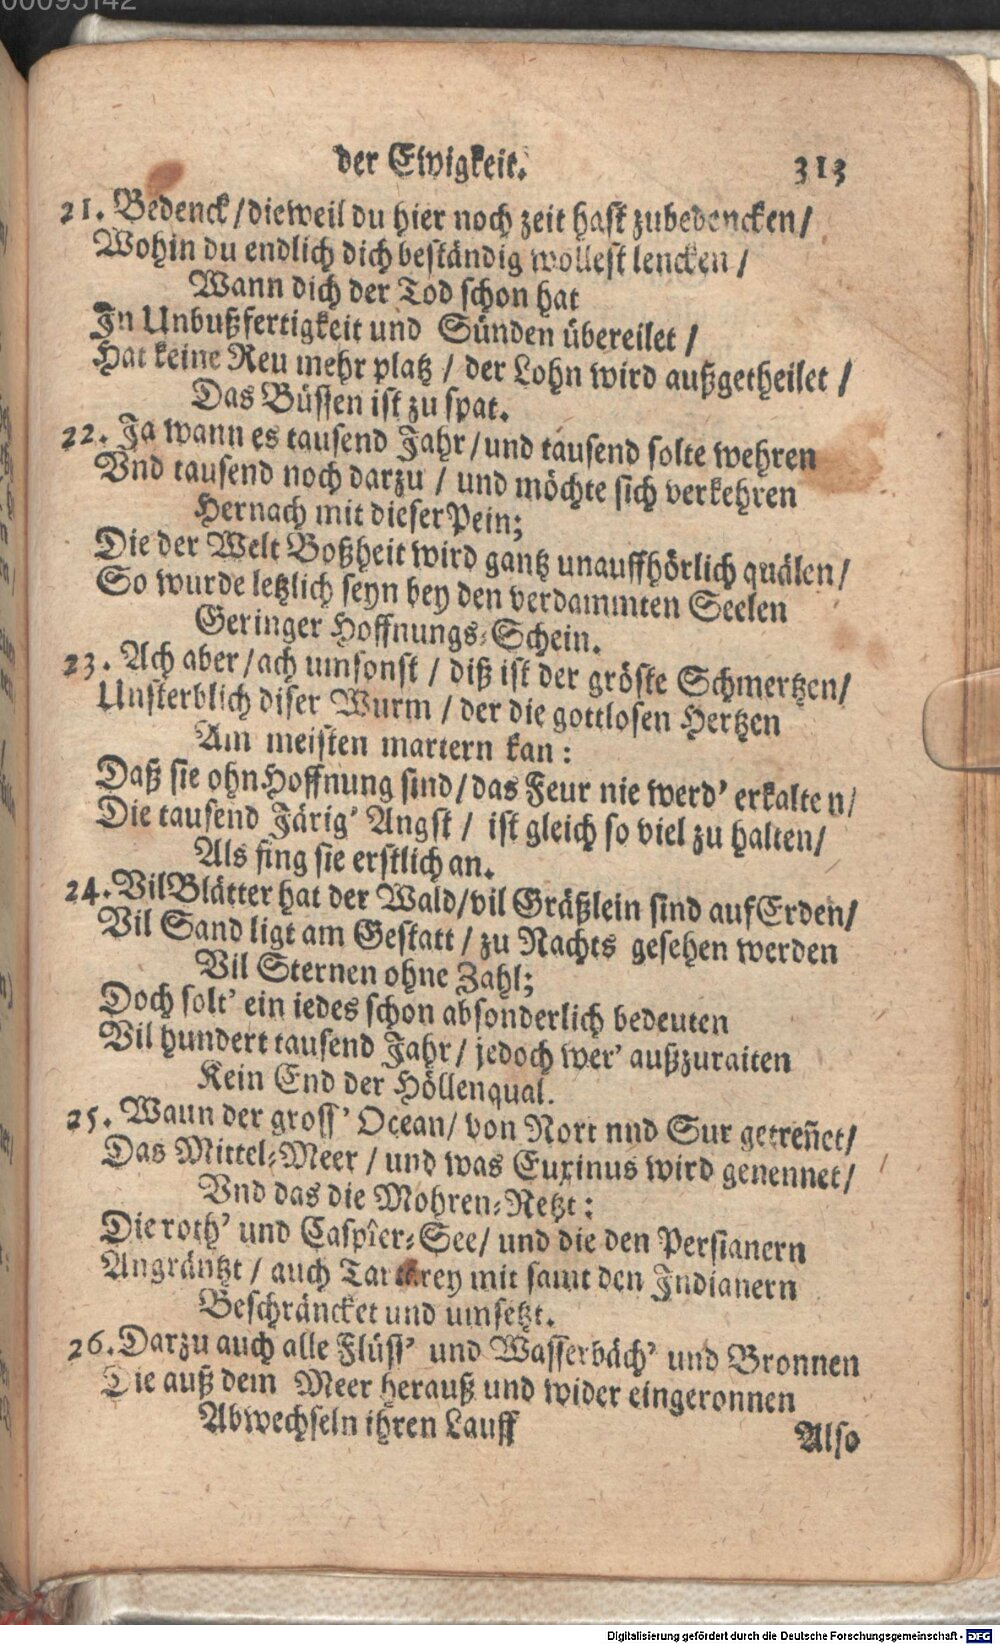 00095142
der Ewigkeit. 313
21. Bedenck/dieweil du hier noch zeit hast zubedencken/
Wohin du endlich dich beständig wollest lencken /
Wann dich der Tod schon hat
In Unbußfertigkeit und Sünden übereilet /
Hat keine Reu mehr platz / der Lohn wird außgetheilet /
Das Büssen ist zu spat.
22. Ja wann es tausend Jahr/und tausend solte wehren
Vnd tausend noch darzu / und möchte sich verkehren
Hernach mit dieser Pein;
Die der Welt Boßheit wird gantz unauffhörlich quälen/
So wurde letzlich seyn bey den verdammten Seelen
Geringer Hoffnungs-Schein.
23. Ach aber/ach umsonst / diß ist der gröste Schmertzen/
Unsterblich diser Wurm / der die gottlosen Hertzen
Am meisten martern kan:
Daß sie ohn Hoffnung sind/das Feur nie werd' erkalten/
Die tausend Järig' Angst / ist gleich so viel zu halten/
Als fing sie erstlich an.
24. Vil Blätter hat der Wald/vil Gräßlein sind auf Erden/
Vil Sand ligt am Gestatt / zu Nachts gesehen werden
Vil Sternen ohne Zahl;
Doch solt' ein iedes schon absonderlich bedeuten
Vil hundert tausend Jahr/ jedoch wer' außzuraiten
Kein End der Höllenqual.
25. Wann der gross' Ocean/ von Nort nnd Sur getreñet/
Das Mittel-Meer / und was Euxinus wird genennet/
Vnd das die Mohren-Netzt:
Die roth' und Caspîer-See/ und die den Persianern
Angräntzt / auch Tartarey mit samt den Indianern
Beschräncket und umsetzt.
26. Darzu auch alle Flüss' und Wasserbäch' und Bronnen
Die auß dem Meer herauß und wider eingeronnen
Abwechseln ihren Lauff
Also
Digitalisierung gefördert durch die Deutsche Forschungsgemeinschaft - DFG